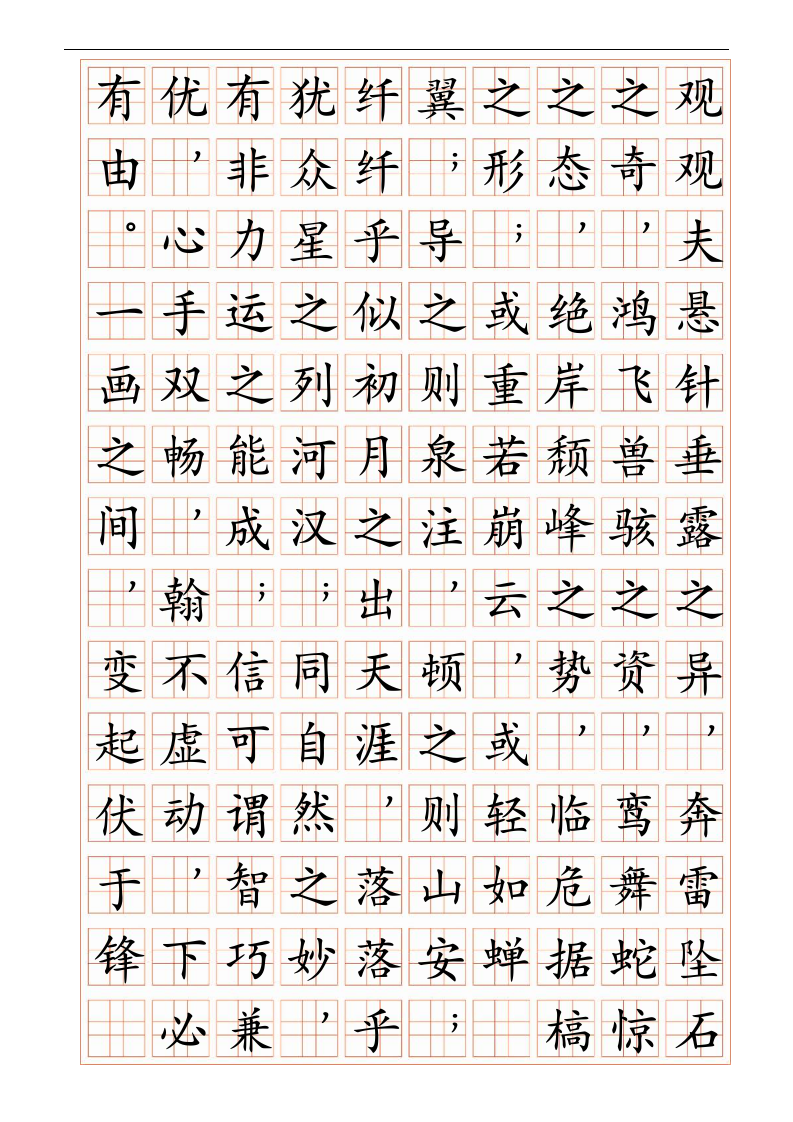 观观夫悬针垂露之异，奔雷坠石
之奇，鸿飞兽骇之资，鸾舞蛇惊
之态，绝岸颓峰之势，临危据槁
之形；或重若崩云，或轻如蝉
翼；导之则泉注，顿之则山安；
纤纤乎似初月之出天涯，落落乎
犹众星之列河汉；同自然之妙，
有非力运之能成；信可谓智巧兼
优，心手双畅，翰不虚动，下必
有由。一画之间，变起伏于锋